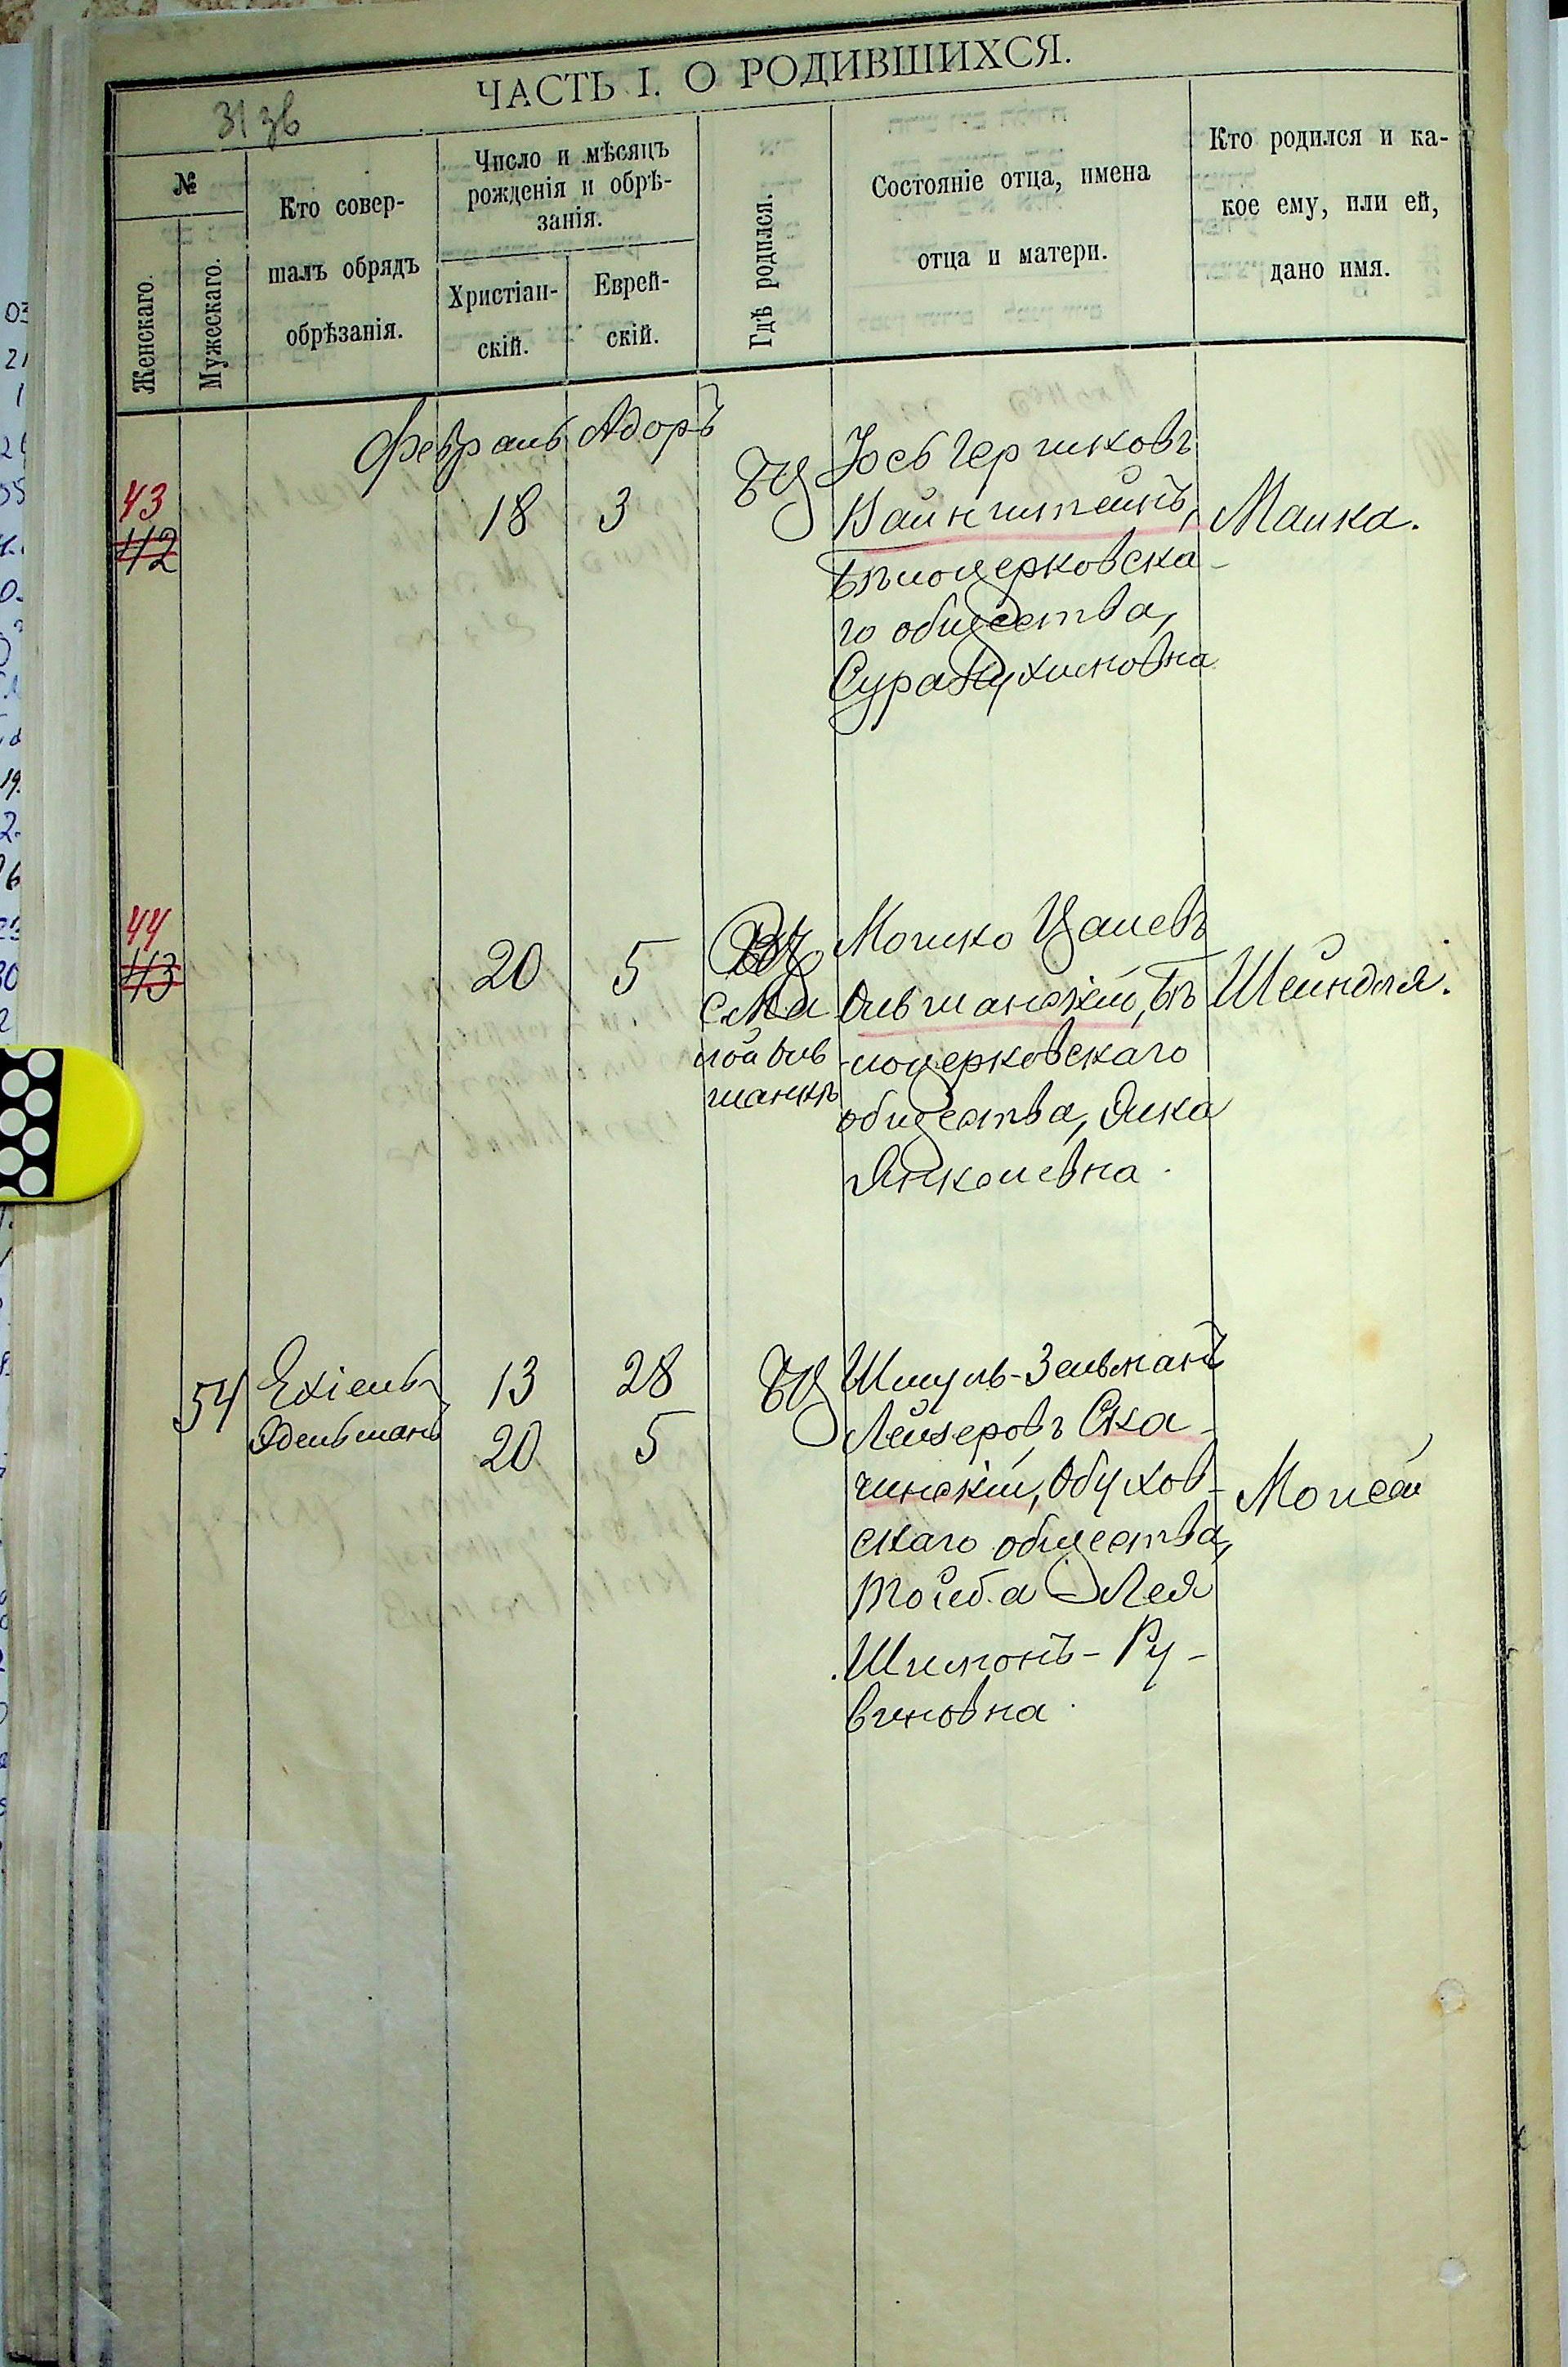 ЧАСТЬ I. О РОДИВШИХСЯ.
31 зв
№
Женскаго.
Мужескаго.
Кто совер-
шалъ обрядъ
обрѣзанія.
Число и мѣсяцъ
рожденія и обрѣ-
занія.
Христіан-
скій.
Еврей-
скій.
Гдѣ родился.
Состояніе отца, имена
отца и матери.
Кто родился и ка-
кое ему, или ей,
дано имя.
Февраль Адоръ
43
42
18
3
БЦ
Іось Гершковъ
Вайнштейнъ,
Бѣлоцерковска-
го общества,
Сура Нухимовна
Малка.
44
43
20
5
с. Ма
лой Оль
шанкѣ
Мошко Цалевъ
Ольшанскій, Бѣ
лоцерковскаго
общества,
Янкелевна.
Шейндля.
54
Ехіель
Эдельманъ
13
20
28
5
БЦ
Шмуль-Зельманъ
Лейзеровъ Ска-
чинскій, Обухов-
скаго общества,
Тойба Лея
Шимонъ-Ру-
виновна.
Моисей